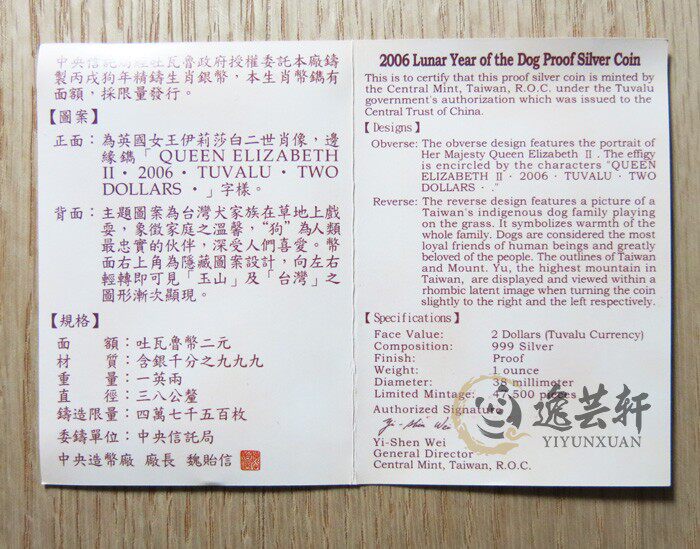 中央信託局經吐瓦魯政府授權委託本廠鑄
製丙戌狗年精鑄生肖銀幣，本生肖幣鐫有
面額，採限量發行。
【圖案】
正面：為英國女王伊莉莎白二世肖像，邊
緣鐫「QUEEN ELIZABETH
II・2006・TUVALU・TWO
DOLLARS・」字樣。
背面：主題圖案為台灣犬家族在草地上戲
耍，象徵家庭之溫馨，"狗"為人類
最忠實的伙伴，深受人們喜愛。幣
面右上角為隱藏圖案設計，向左右
輕轉即可見「玉山」及「台灣」之
圖形漸次顯現。
【規格】
面額：吐瓦魯幣二元
材質：含銀千分之九九九
重量：一英兩
直徑：三八公釐
鑄造限量：四萬七千五百枚
委鑄單位：中央信託局
中央造幣廠 廠長 魏貽信
2006 Lunar Year of the Dog Proof Silver Coin
This is to certify that this proof silver coin is minted by
the Central Mint, Taiwan, R.O.C. under the Tuvalu
government's authorization which was issued to the
Central Trust of China.
【Designs】
Obverse: The obverse design features the portrait of
Her Majesty Queen Elizabeth II. The effigy
is encircled by the characters "QUEEN
ELIZABETH II・2006・TUVALU・TWO
DOLLARS・."
Reverse: The reverse design features a picture of a
Taiwan's indigenous dog family playing
on the grass. It symbolizes warmth of the
whole family. Dogs are considered the most
loyal friends of human beings and greatly
beloved of the people. The outlines of Taiwan
and Mount. Yu, the highest mountain in
Taiwan, are displayed and viewed within a
rhombic latent image when turning the coin
slightly to the right and the left respectively.
【Specifications】
Face Value: 2 Dollars (Tuvalu Currency)
Composition: 999 Silver
Finish: Proof
Weight: 1 ounce
Diameter: 38 millimeter
Limited Mintage: 47,500 pieces
Authorized Signature
Yi-Shin Wei
Yi-Shen Wei
General Director
Central Mint, Taiwan, R.O.C.
逸芸軒
YIYUNXUAN